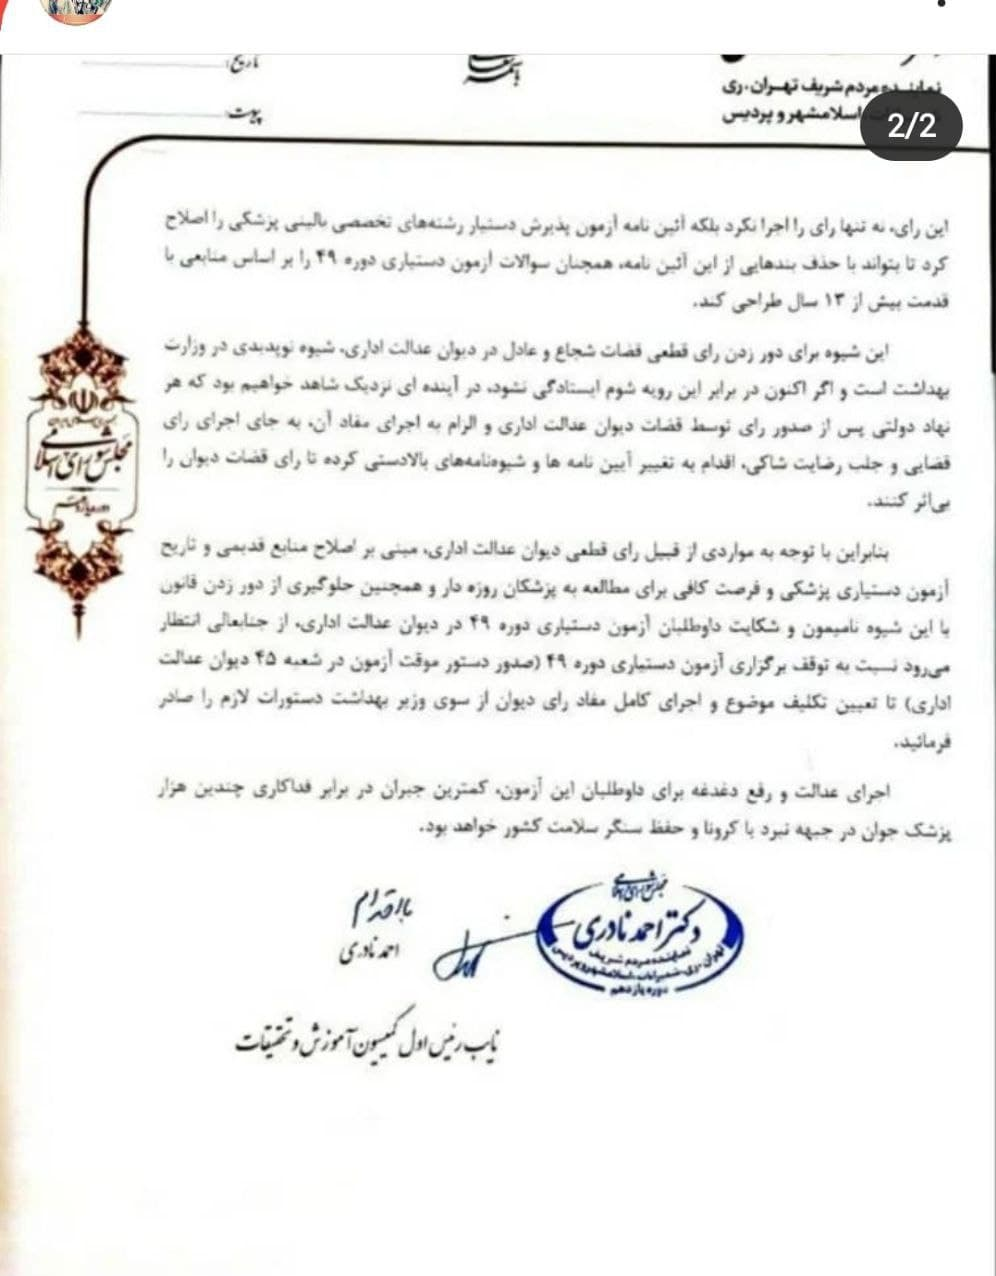 تاریخ:
پیوست:
بسمه تعالی
نماینده مردم شریف تهران، ری
اسلامشهر و پردیس
2/2
این رای، نه تنها رای را اجرا نکرد بلکه آئین نامه آزمون پذیرش دستیار رشته‌های تخصصی بالینی پزشکی را اصلاح
کرد تا بتواند با حذف بندهایی از این آئین نامه، همچنان سوالات آزمون دستیاری دوره ۴۹ را بر اساس منابعی با
قدمت بیش از ۱۳ سال طراحی کند.
این شیوه برای دور زدن رای قطعی قضات شجاع و عادل در دیوان عدالت اداری، شیوه نوپدیدی در وزارت
بهداشت است و اگر اکنون در برابر این رویه شوم ایستادگی نشود، در آینده ای نزدیک شاهد خواهیم بود که هر
نهاد دولتی پس از صدور رای توسط قضات دیوان عدالت اداری و الزام به اجرای مفاد آن، به جای اجرای رای
قضایی و جلب رضایت شاکی، اقدام به تغییر آیین نامه ها و شیوه‌نامه‌های بالادستی کرده تا رای قضات دیوان را
بی‌اثر کنند.
بنابراین با توجه به مواردی از قبیل رای قطعی دیوان عدالت اداری، مبنی بر اصلاح منابع قدیمی و تاریخ
آزمون دستیاری پزشکی و فرصت کافی برای مطالعه به پزشکان روزه دار و همچنین جلوگیری از دور زدن قانون
با این شیوه نامیمون و شکایت داوطلبان آزمون دستیاری دوره ۴۹ در دیوان عدالت اداری، از جنابعالی انتظار
می‌رود نسبت به توقف برگزاری آزمون دستیاری دوره ۴۹ (صدور دستور موقت آزمون در شعبه ۴۵ دیوان عدالت
اداری) تا تعیین تکلیف موضوع و اجرای کامل مفاد رای دیوان از سوی وزیر بهداشت دستورات لازم را صادر
فرمائید.
اجرای عدالت و رفع دغدغه برای داوطلبان این آزمون، کمترین جبران در برابر فداکاری چندین هزار
پزشک جوان در جبهه نبرد با کرونا و حفظ سنگر سلامت کشور خواهد بود.
مجلس شورای اسلامی
دوره یازدهم
با احترام
احمد نادری
مجلس شورای اسلامی
دکتر احمد نادری
نماینده مردم شریف
تهران، ری، شمیرانات، اسلامشهر و پردیس
دوره یازدهم
نایب رئیس اول کمیسیون آموزش و تحقیقات